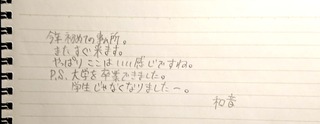 今年初めての事ム所。
また、すぐ来ます。
やっぱりここはいい感じですね。
P.S. 大学を卒業できました。
学生じゃなくなりました〜。
和音